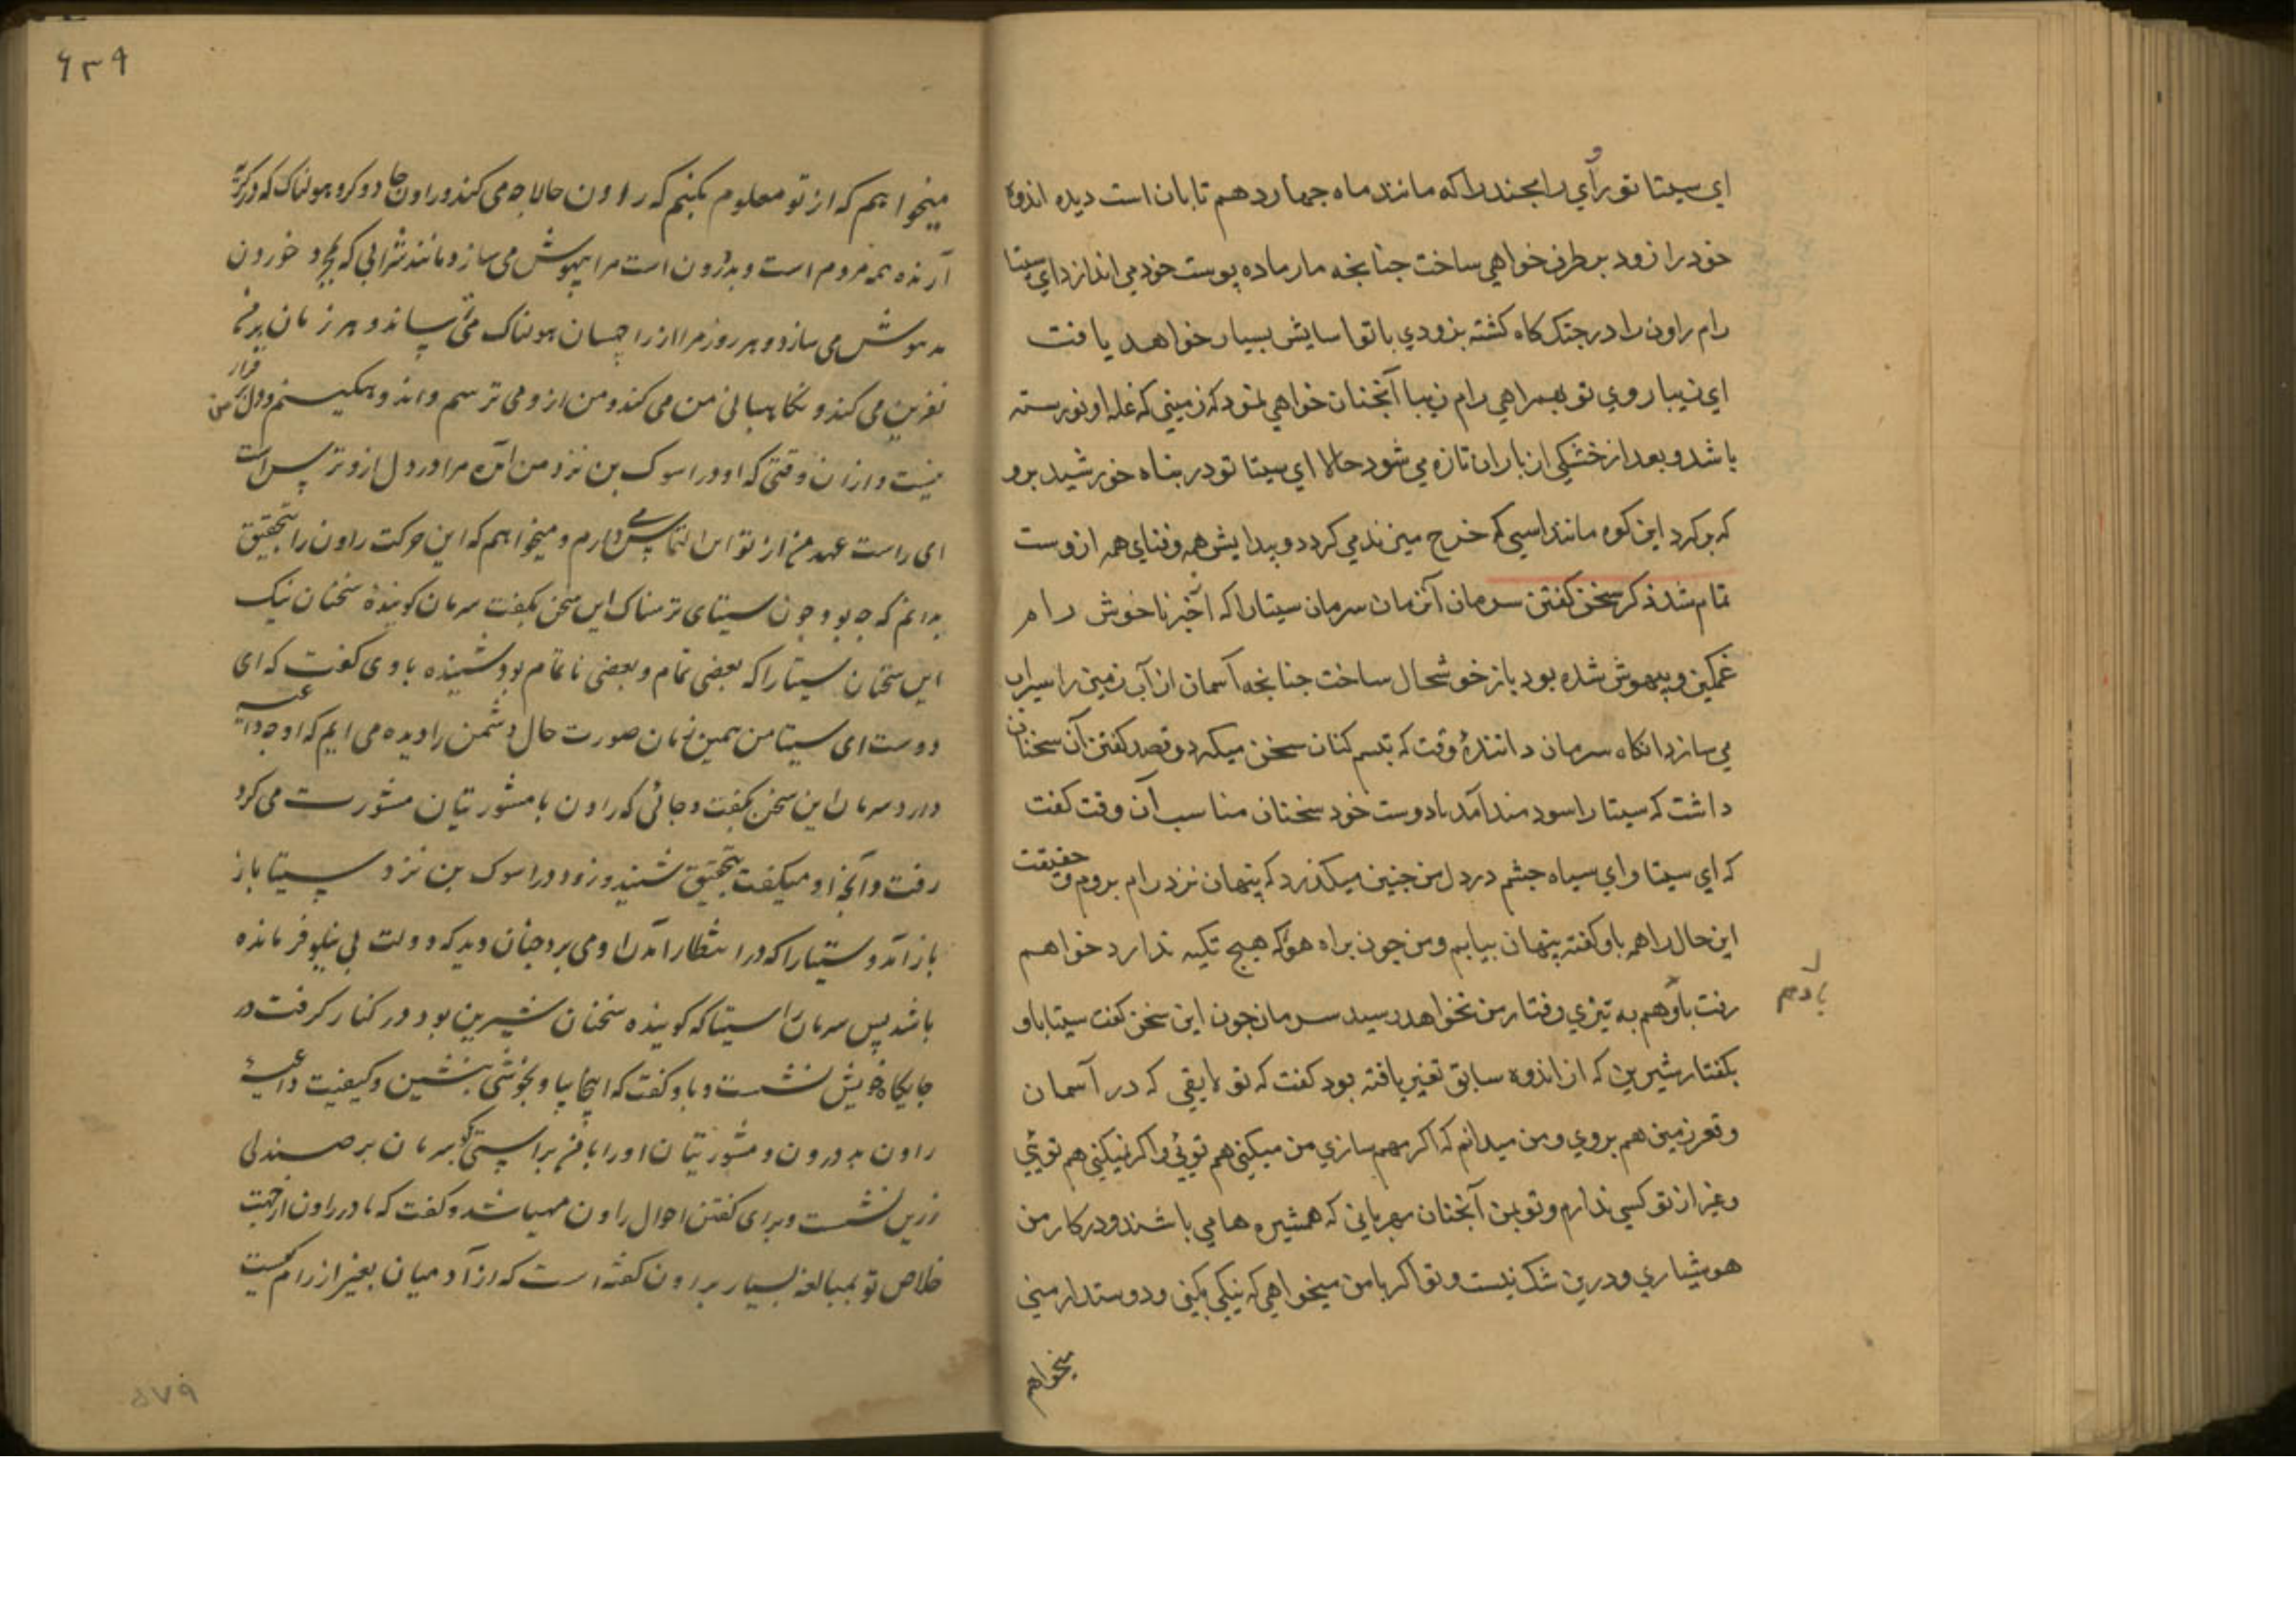 اي سيتا تو رآي رامچند را كه مانند ماه چهاردهم تابان است ديده اندوه
خود را زود بر طرف خواهي ساخت چنانچه مار ماده پوست خود مي اندازد اي سيتا
رام راون را در جنك كاه كشته بزودي با تو آسايش بسيار خواهد يافت
اي زيبا روي تو بهمراهي رام زيبا آنچنان خواهي نمود كه زميني كه غله او نورسته
باشد و بعد از خشكي از باران تازه مي شود حالا اي سيتا تو در پناه خورشيد برو
كه بر كرد اين كوه مانند اسپي كه چرخ ميزند مي كردد و پيدايش همه و فناي همه ازوست
تمام شد ذكر سخن كفتن سرمان آن زمان سرمان سيتا را كه از خبر ناخوش رام
غمكين و بيهوش شده بود باز خوشحال ساخت چنانچه آسمان از آب زمين را سيراب
مي سازد انكاه سرمان دانندۀ وقت كه تبسم كنان سخن ميكرد و قصد كفتن آن سخنان
داشت كه سيتا را سودمند آمد با دوست خود سخنان مناسب آن وقت كفت
كه اي سيتا و اي سياه چشم در دل من چنين ميكذرد كه پنهان نزد رام بروم و حقيقت
اين حال را همه باو كفته پنهان بيايم و من چون براه هوا كه هيچ تكيه ندارد خواهم
رفت باد هم به تيزي رفتار من نخواهد رسيد سرمان چون اين سخن كفت سيتا باو
باد هم
بكفتار شيرين كه از اندوه سابق تغير يافته بود كفت كه تو لايقي كه در آسمان
و قعر زمين هم بروي و من ميدانم كه اكر مهم سازي من ميكني هم توئي و اكر نميكني هم توئي
و غير از تو كسي ندارم و تو بمن آنچنان مهرباني كه همشيره ها مي باشند و در كار من
هوشياري و درين شك نيست و تو اكر با من ميخواهي كه نيكي بكني و دوستدار مني
ميخواهم
۶۳۹
ميخواهم كه از تو معلوم بكنم كه راون حالا چه مي كند و راون جادوكر و هولناك كه در كريه
آرنده همه مردم است و بددرون است مرا بيهوش مي سازد مانند شرابي كه بمجرد خوردن
مدهوش مي سازد و هر روز مرا از راچهسان هولناك مي ترساند و هر زمان بر من
نفرين مي كند و نكاهباني من مي كند و من ازو مي ترسم و اندوهكينم و دل من بر قرار
نيست و از آن وقتي كه او در اسوك بن نزد من آمده مرا در دل ازو ترس است
اي راست عهد من از تو اين التماس مي دارم و ميخواهم كه اين حركت راون را بتحقيق
بدانم كه چه بود چون سيتاي ترسناك اين سخن بكفت سرمان كويندۀ سخنان نيك
اين سخنان سيتا را كه بعضي تمام و بعضي ناتمام بود شنيده با وي كفت كه اي
دوست اي سيتا من همين زمان صورت حال دشمن را ديده مي ايم كه او چه داعيه
دارد سرمان اين سخن بكفت و جائي كه راون با مشورتيان مشورت مي كرد
رفت و آنچه او ميكفت بتحقيق شنيد و زود در اسوك بن نزد سيتا باز
باز آمد و سيتا را كه در انتظار آمدن او مي برد چنان ديد كه دولت بي نيلوفر مانده
باشد پس سرمان را سيتا كه كوينده سخنان شيرين بود در كنار كرفت و در
جايكاه خويش نشست و باو كفت كه اينجا بيا و بخوشي بنشين و كيفيت داعيه
راون بددرون و مشورتيان او را با من براستي بكو سرمان بر صندلي
زرين نشست و براي كفتن احوال راون مهيا شد و كفت كه مادر راون از جهت
خلاص تو بمبالغه بسيار براون كفته است كه از آدميان بغير از رام كيست
۵۷۹